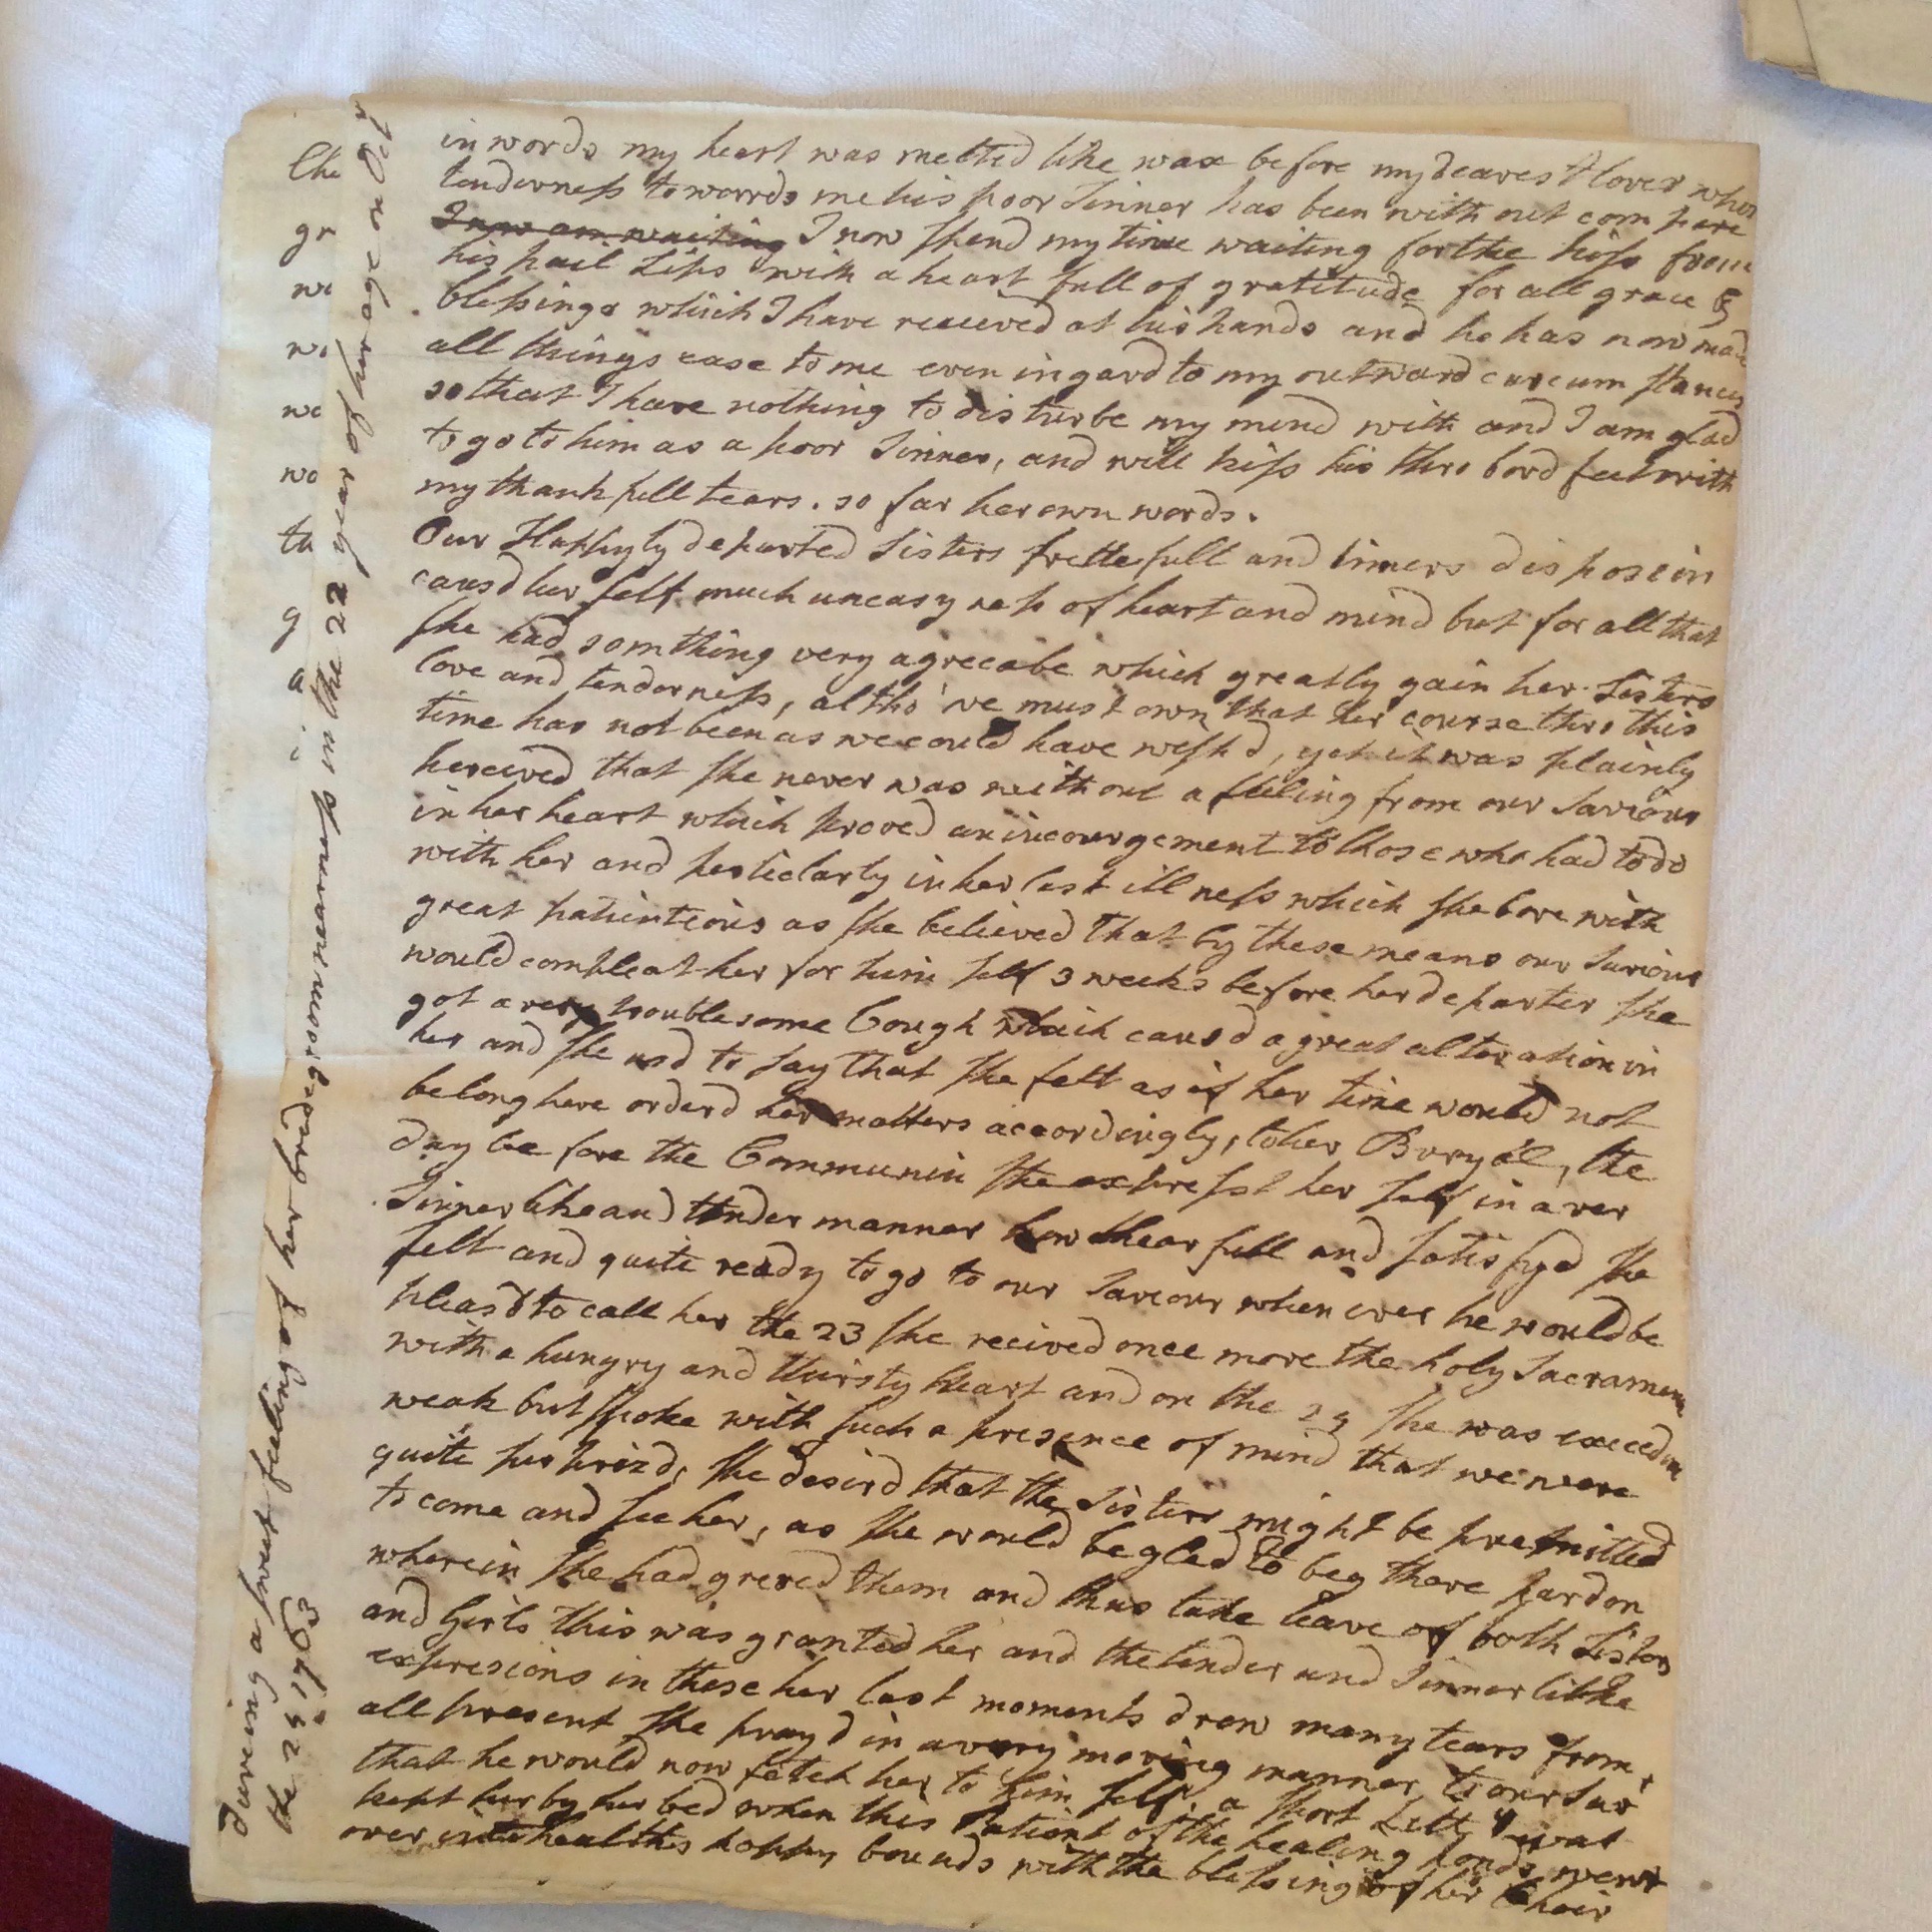 in words my heart was melted like wax before my dearest lover whos
tenderness towarrds me his poor Sinner has been with out compare
I now am waiting I now spend my time waiting for the kiss from
his pail Lips with a heart full of gratitude for all grace &
blessings which I have received at his hands and he has now made
all things ease to me even in gard to my outward curcumstances
so that I have nothing to disturbe my mind with and I am glad
to go to him as a poor Sinner, and will kiss his thro bord feet with
my thankfull tears. so far her own words.
Our Happyly departed Sisters frettefull and dispossin
causd her self much uneasyness of heart and mind but for all that
she had somthing very agreeabe which greatly gain her Sisters
love and tenderness, altho' we must own that her course thro this
time has not been as we could have wishd, yet it was plainly
perceived that she never was without a feeling from our Saviour
in her heart which proved an incourgement to those who had to do
with her and perticlarly in her last illness which she bore with
great patienteous as she believed that by these means our Saviour
would compleat her for him self 3 weeks before her departer she
got a very troublesome Cough which causd a great alteration in
her and she usd to say that she felt as if her time would not
be long here orderd her matters accordingly, to her Buryal, the
day be fore the Communin she exspresst her self in a ver
Sinner like and tender manner how chearfull and satisfyd she
felt and quite ready to go to our Saviour when ever he would be
pleasd to call her the 23 she recived once more the holy Sacramen
with a hungry and thirsty heart and on the 24 she was exceedin
weak but spoke with such a presence of mind that we were
quite surprizd, she desird that the Sisters might be premitted
to come and see her, as she would be glad to beg there pardon
wherein she had greved them and thus take leave of both Sisters
and Girls this was granted her and the tender and Sinner like
expresions in these her last moments drew many tears from
all present she prayd in a very moving manner to our Savr
that he would now fetch her to him self, a short Litty was
kept her by her bed when this Patient of the healing hands went
over into healths happy bounds with the blessing of her Choir
during a sweet feeling of her bridegrooms nearness in the 22 year of her age on Octr
the 25 1763
Che
gr
we
we
wo
th
g
a
i